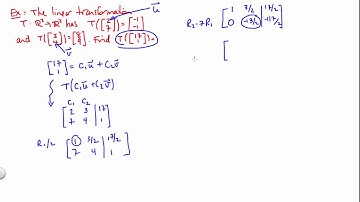 Ex: The linear transformation
T: R²→R² has T([2 7])=[-1 -1]
and T([3 4])=[ ]. Find T([17 1]).
u
v
[17 1] = c₁u + c₂v
↓
T(c₁u + c₂v)
c₁ c₂
[2 3 | 17
7 4 | 1]
R₁/2 [1 3/2 | 17/2
7 4 | 1]
R₂-7R₁ [1 3/2 | 17/2
0 -13/2 | -117/2]
[